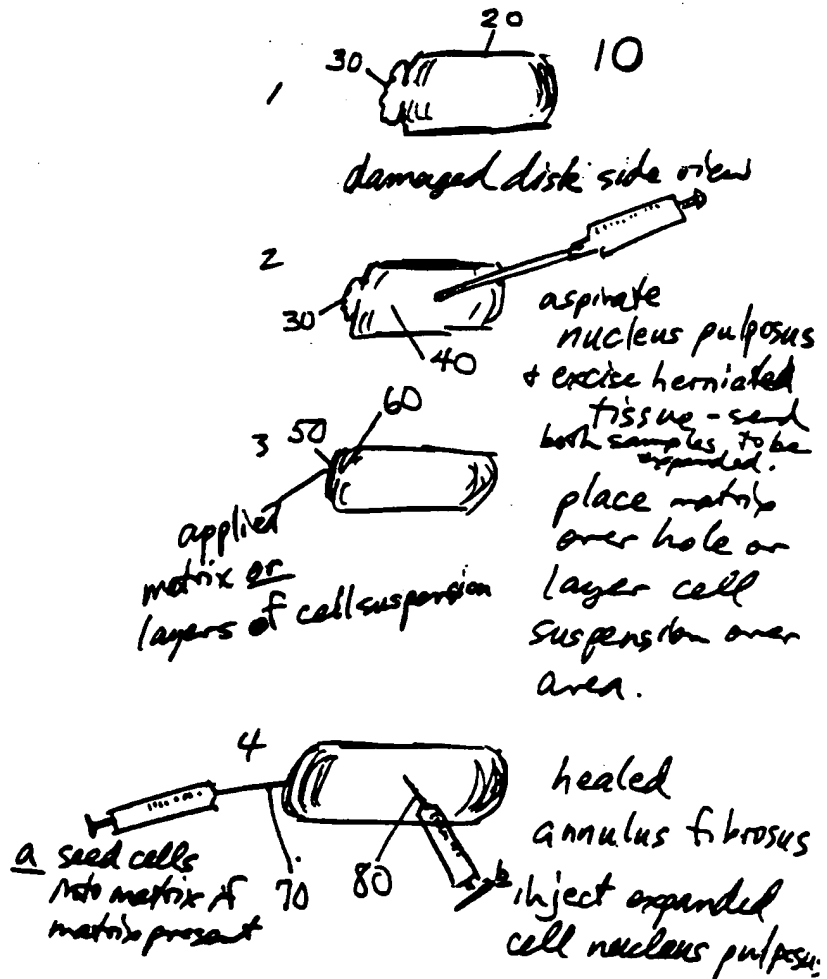 20
30
10
1
damaged disk side view
2
30
40
aspirate
nucleus pulposus
+ excise herniated
tissue - send
both samples to be
expanded.
3 50
60
applied
matrix or
layers of cell suspension
place matrix
over hole or
layer cell
suspension over
area.
4
70
80
healed
annulus fibrosus
a seed cells
into matrix if
matrix present
b
inject expanded
cell nucleus pulposus